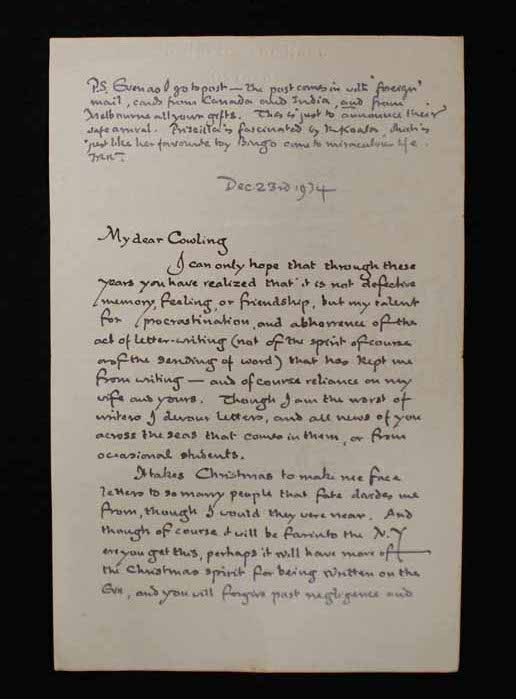 P.S. Even as I go to post — the post comes in with 'foreign'
mail, cards from Canada and India, and from
Melbourne all your gifts. This is just to announce their
safe arrival. Priscilla is fascinated by the Koala, that is
just like her favourite toy Bingo come to miraculous life.
JRRT.
Dec. 23rd 1934
My dear Cowling
I can only hope that through these
years you have realized that it is not defective
memory, feeling, or friendship, but my talent
for procrastination, and abhorrence of the
act of letter-writing (not of the spirit of course
or of the sending of word) that has kept me
from writing — and of course reliance on my
wife and yours. Though I am the worst of
writers I devour letters, and all news of you
across the seas that comes in them, or from
occasional students.
It takes Christmas to make me face
letters to so many people that fate divides me
from, though I would they were near. And
though of course it will be far into the N.Y
ere you get this, perhaps it will have more of
the Christmas spirit for being written on the
Eve, and you will forgive past negligence and